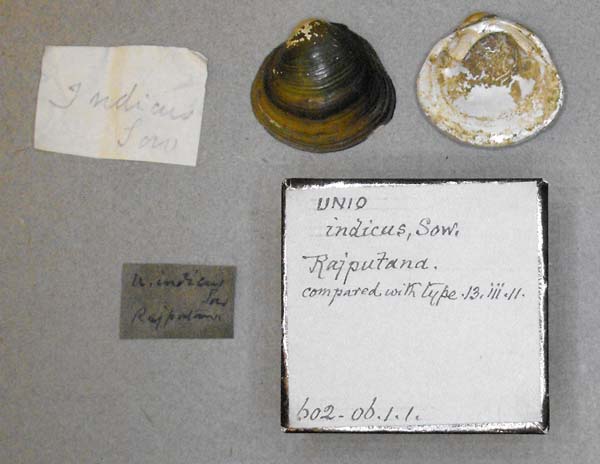 Indicus
Sow
UNIO
indicus, Sow.
Rajputana.
compared with type .13.iii.11.
602-06.1.1.
U. indicus
Sow
Rajputana